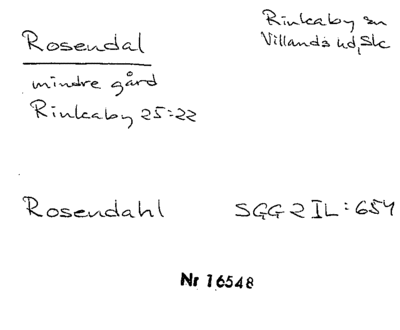 Rosendal
Rinkaby sn
Villands hd, Skc
mindre gård
Rinkaby 25:22
Rosendahl SGG 2 IL:654
Nr 16548